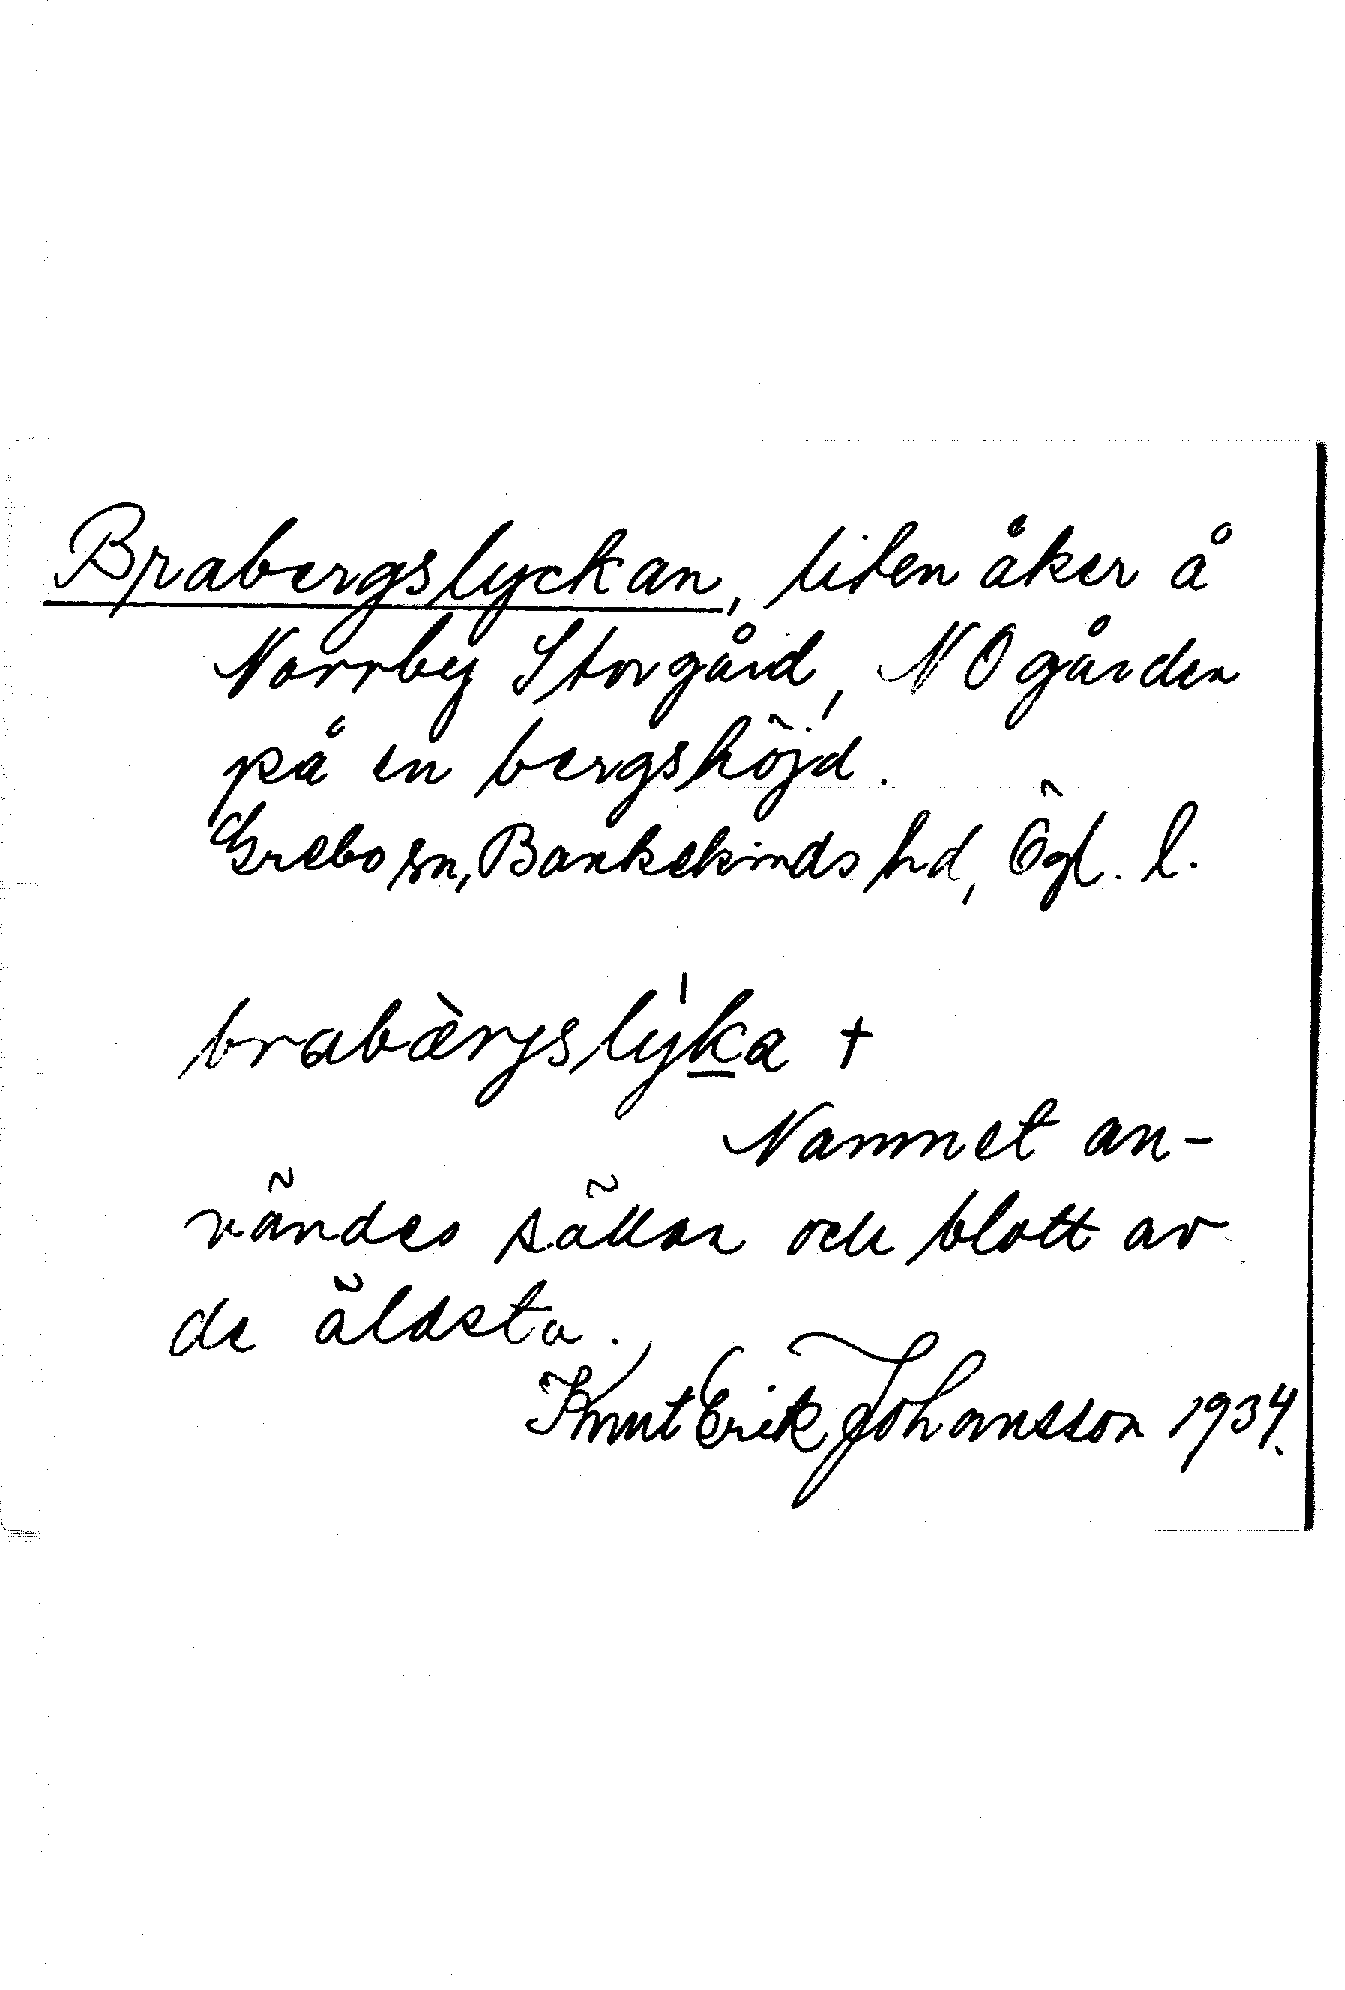 Brabergslyckan, liten åker å
Norrby Storgård, NO gården
på en bergshöjd.
Grebo sn, Bankekinds hd, Ögl. l.
brabæ̀rjslýka +
Namnet an-
vändes sällan och blott av
de äldsta.
Knut Erik Johansson 1934.